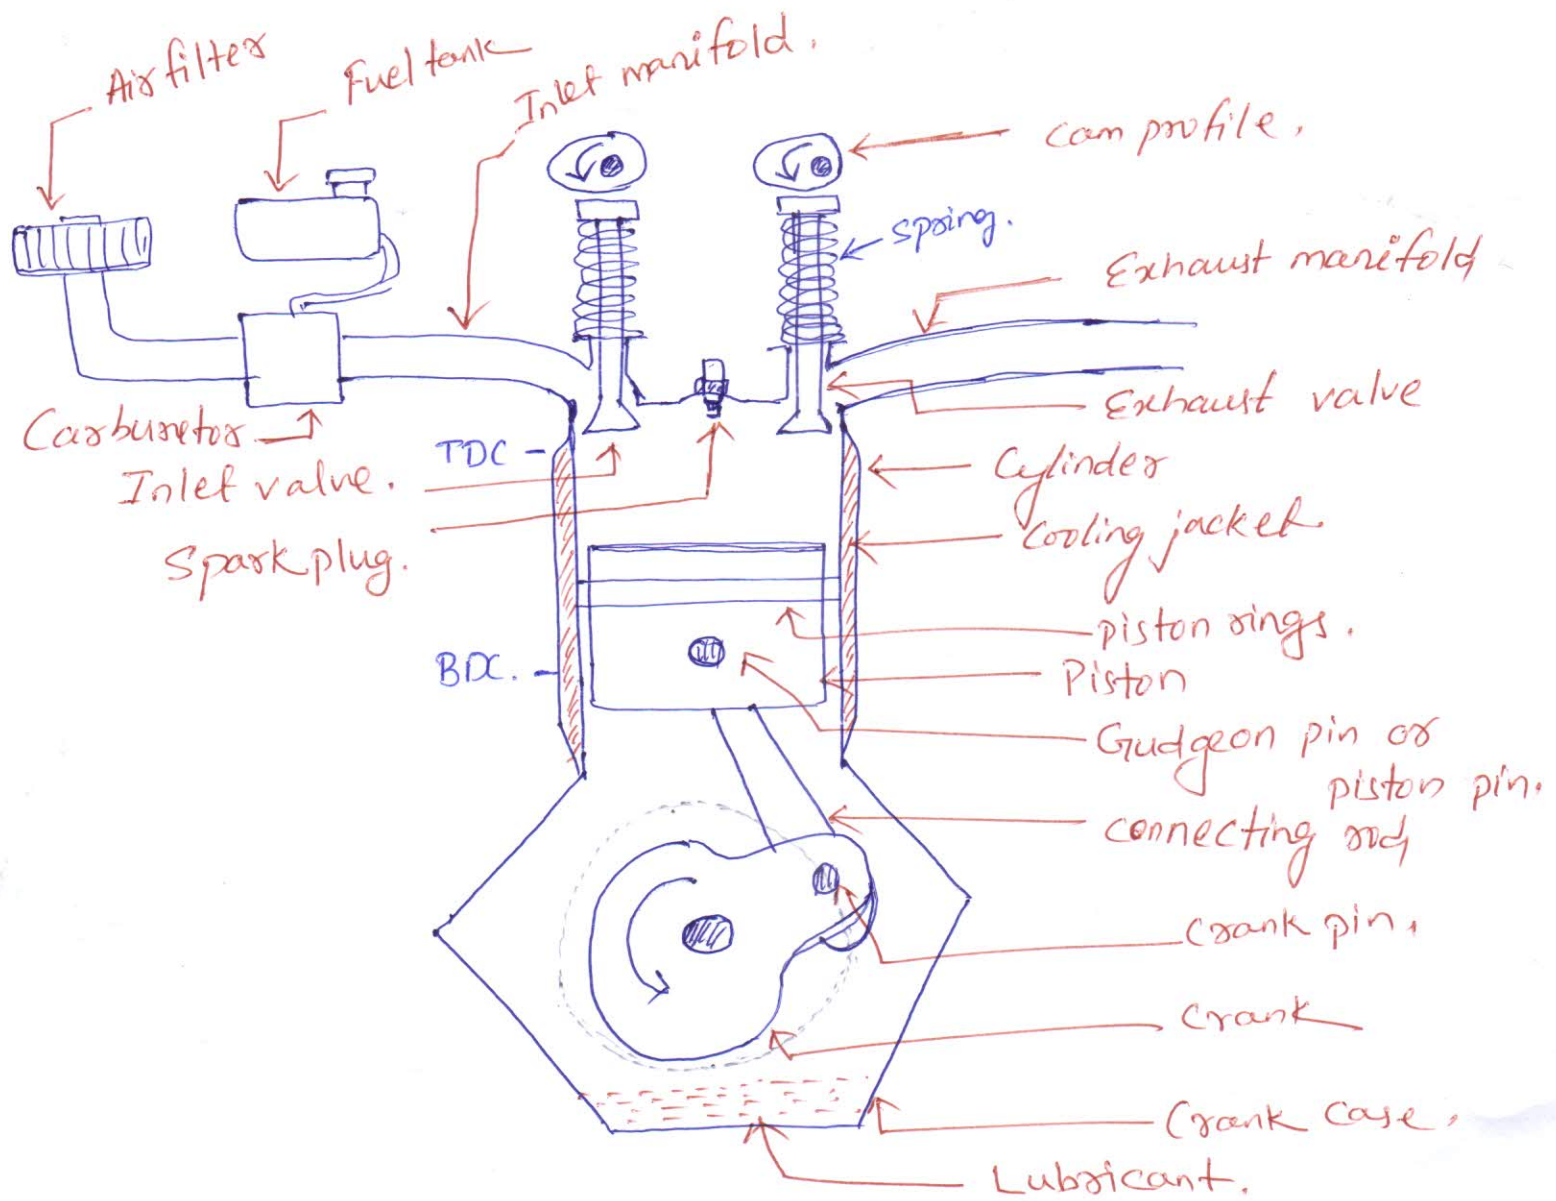 Air filter
Fuel tank
Inlet manifold.
cam profile.
spring.
Exhaust manifold
Exhaust valve
Carburetor
TDC
Inlet valve.
Cylinder
Cooling jacket
Spark plug.
piston rings.
BDC.
Piston
Gudgeon pin or
piston pin.
connecting rod
Crank pin.
Crank
Crank case.
Lubricant.